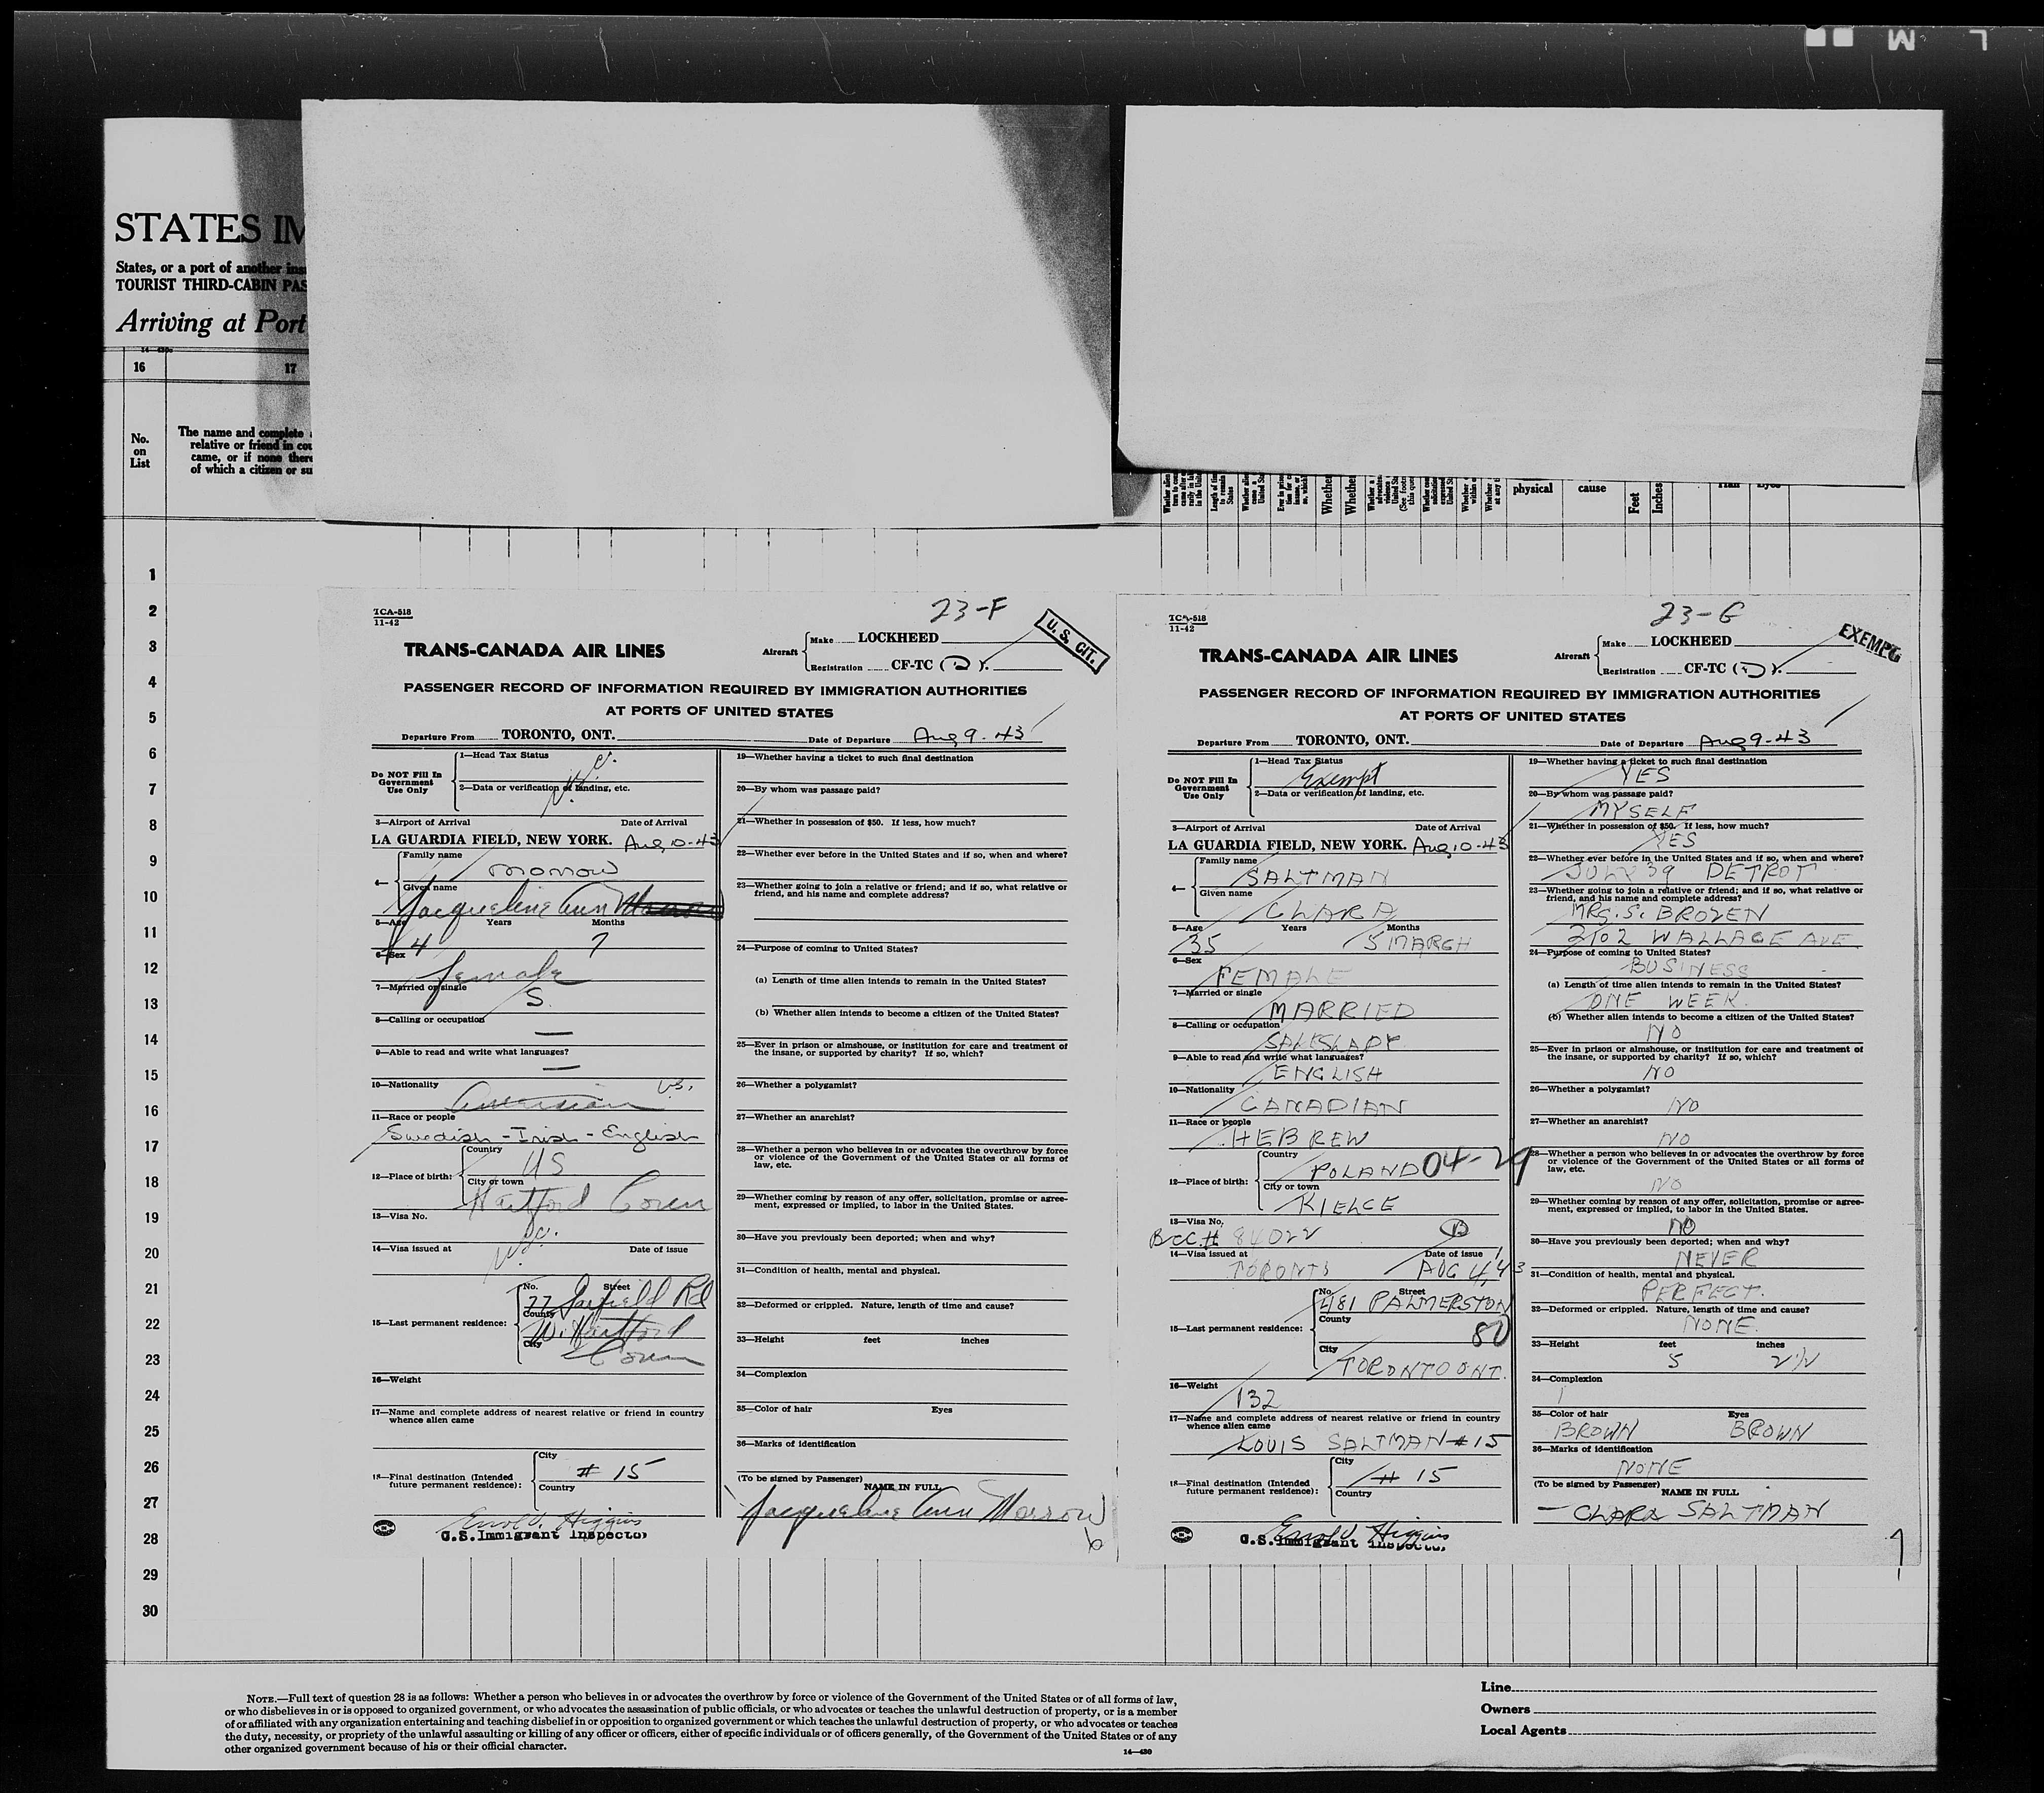 L M
STATES IM
States, or a port of another ins
TOURIST THIRD-CABIN PAS
Arriving at Port
16
17
No.
on
List
The name and complete
relative or friend in cou
came, or if none there
of which a citizen or su
Whether
Whether
physical
cause
Feet
Inches
1
2
3
4
5
6
7
8
9
10
11
12
13
14
15
16
17
18
19
20
21
22
23
24
25
26
27
28
29
30
TCA-518
11-42
23-F
U. S. CIT.
TRANS-CANADA AIR LINES
Aircraft
Make LOCKHEED
Registration CF-TC (D).
PASSENGER RECORD OF INFORMATION REQUIRED BY IMMIGRATION AUTHORITIES
AT PORTS OF UNITED STATES
Departure From TORONTO, ONT. Date of Departure Aug 9-43
Do NOT Fill In
Government
Use Only
1—Head Tax Status
2—Data or verification of landing, etc.
3—Airport of Arrival Date of Arrival
LA GUARDIA FIELD, NEW YORK. Aug 10-43
4—
Family name
Morrow
Given name
Jacqueline Ann
5—Age Years Months
4 7
6—Sex
female
7—Married or single
S
8—Calling or occupation
—
9—Able to read and write what languages?
—
10—Nationality
American
11—Race or people
Swedish-Irish-English
12—Place of birth:
Country
US
City or town
Hartford Conn
13—Visa No.
14—Visa issued at Date of issue
15—Last permanent residence:
No. Street
77 Garfield Rd
County
W. Hartford
City
Conn
16—Weight
17—Name and complete address of nearest relative or friend in country
whence alien came
18—Final destination (Intended
future permanent residence):
City
# 15
Country
Higgins
U.S. Immigrant Inspector
19—Whether having a ticket to such final destination
20—By whom was passage paid?
21—Whether in possession of $50. If less, how much?
22—Whether ever before in the United States and if so, when and where?
23—Whether going to join a relative or friend; and if so, what relative or
friend, and his name and complete address?
24—Purpose of coming to United States?
(a) Length of time alien intends to remain in the United States?
(b) Whether alien intends to become a citizen of the United States?
25—Ever in prison or almshouse, or institution for care and treatment of
the insane, or supported by charity? If so, which?
26—Whether a polygamist?
27—Whether an anarchist?
28—Whether a person who believes in or advocates the overthrow by force
or violence of the Government of the United States or all forms of
law, etc.
29—Whether coming by reason of any offer, solicitation, promise or agree-
ment, expressed or implied, to labor in the United States.
30—Have you previously been deported; when and why?
31—Condition of health, mental and physical.
32—Deformed or crippled. Nature, length of time and cause?
33—Height feet inches
34—Complexion
35—Color of hair Eyes
36—Marks of identification
(To be signed by Passenger)
NAME IN FULL
Jacqueline Ann Morrow
6
TCA-518
11-42
23-G
EXEMPT
TRANS-CANADA AIR LINES
Aircraft
Make LOCKHEED
Registration CF-TC (D).
PASSENGER RECORD OF INFORMATION REQUIRED BY IMMIGRATION AUTHORITIES
AT PORTS OF UNITED STATES
Departure From TORONTO, ONT. Date of Departure Aug 9-43
Do NOT Fill In
Government
Use Only
1—Head Tax Status
Exempt
2—Data or verification of landing, etc.
3—Airport of Arrival Date of Arrival
LA GUARDIA FIELD, NEW YORK. Aug 10-43
4—
Family name
SALTMAN
Given name
CLARA
5—Age Years Months
35 5 MARCH
6—Sex
FEMALE
7—Married or single
MARRIED
8—Calling or occupation
SALESLADY
9—Able to read and write what languages?
ENGLISH
10—Nationality
CANADIAN
11—Race or people
HEBREW
12—Place of birth:
Country
POLAND 04-29
City or town
KIELCE
13—Visa No.
BCC # 84022 B
14—Visa issued at Date of issue
TORONTO AUG 4/43
15—Last permanent residence:
No. Street
481 PALMERSTON
County
80
City
TORONTO ONT.
16—Weight
132
17—Name and complete address of nearest relative or friend in country
whence alien came
LOUIS SALTMAN #15
18—Final destination (Intended
future permanent residence):
City
# 15
Country
Higgins
U.S. Immigrant Inspector
19—Whether having a ticket to such final destination
YES
20—By whom was passage paid?
MYSELF
21—Whether in possession of $50. If less, how much?
YES
22—Whether ever before in the United States and if so, when and where?
JULY 39 DETROT
23—Whether going to join a relative or friend; and if so, what relative or
friend, and his name and complete address?
MRS. S. BROZEN
2102 WALLACE AVE
24—Purpose of coming to United States?
BUSINESS
(a) Length of time alien intends to remain in the United States?
ONE WEEK.
(b) Whether alien intends to become a citizen of the United States?
NO
25—Ever in prison or almshouse, or institution for care and treatment of
the insane, or supported by charity? If so, which?
NO
26—Whether a polygamist?
NO
27—Whether an anarchist?
NO
28—Whether a person who believes in or advocates the overthrow by force
or violence of the Government of the United States or all forms of
law, etc.
NO
29—Whether coming by reason of any offer, solicitation, promise or agree-
ment, expressed or implied, to labor in the United States.
NO
30—Have you previously been deported; when and why?
NEVER
31—Condition of health, mental and physical.
PERFECT.
32—Deformed or crippled. Nature, length of time and cause?
NONE.
33—Height feet inches
5 2½
34—Complexion
35—Color of hair Eyes
BROWN BROWN
36—Marks of identification
NONE
(To be signed by Passenger)
NAME IN FULL
— CLARA SALTMAN
7
NOTE.—Full text of question 28 is as follows: Whether a person who believes in or advocates the overthrow by force or violence of the Government of the United States or of all forms of law,
or who disbelieves in or is opposed to organized government, or who advocates the assassination of public officials, or who advocates or teaches the unlawful destruction of property, or is a member
of or affiliated with any organization entertaining and teaching disbelief in or opposition to organized government or which teaches the unlawful destruction of property, or who advocates or teaches
the duty, necessity, or propriety of the unlawful assaulting or killing of any officer or officers, either of specific individuals or of officers generally, of the Government of the United States or of any
other organized government because of his or their official character.
14—430
Line
Owners
Local Agents